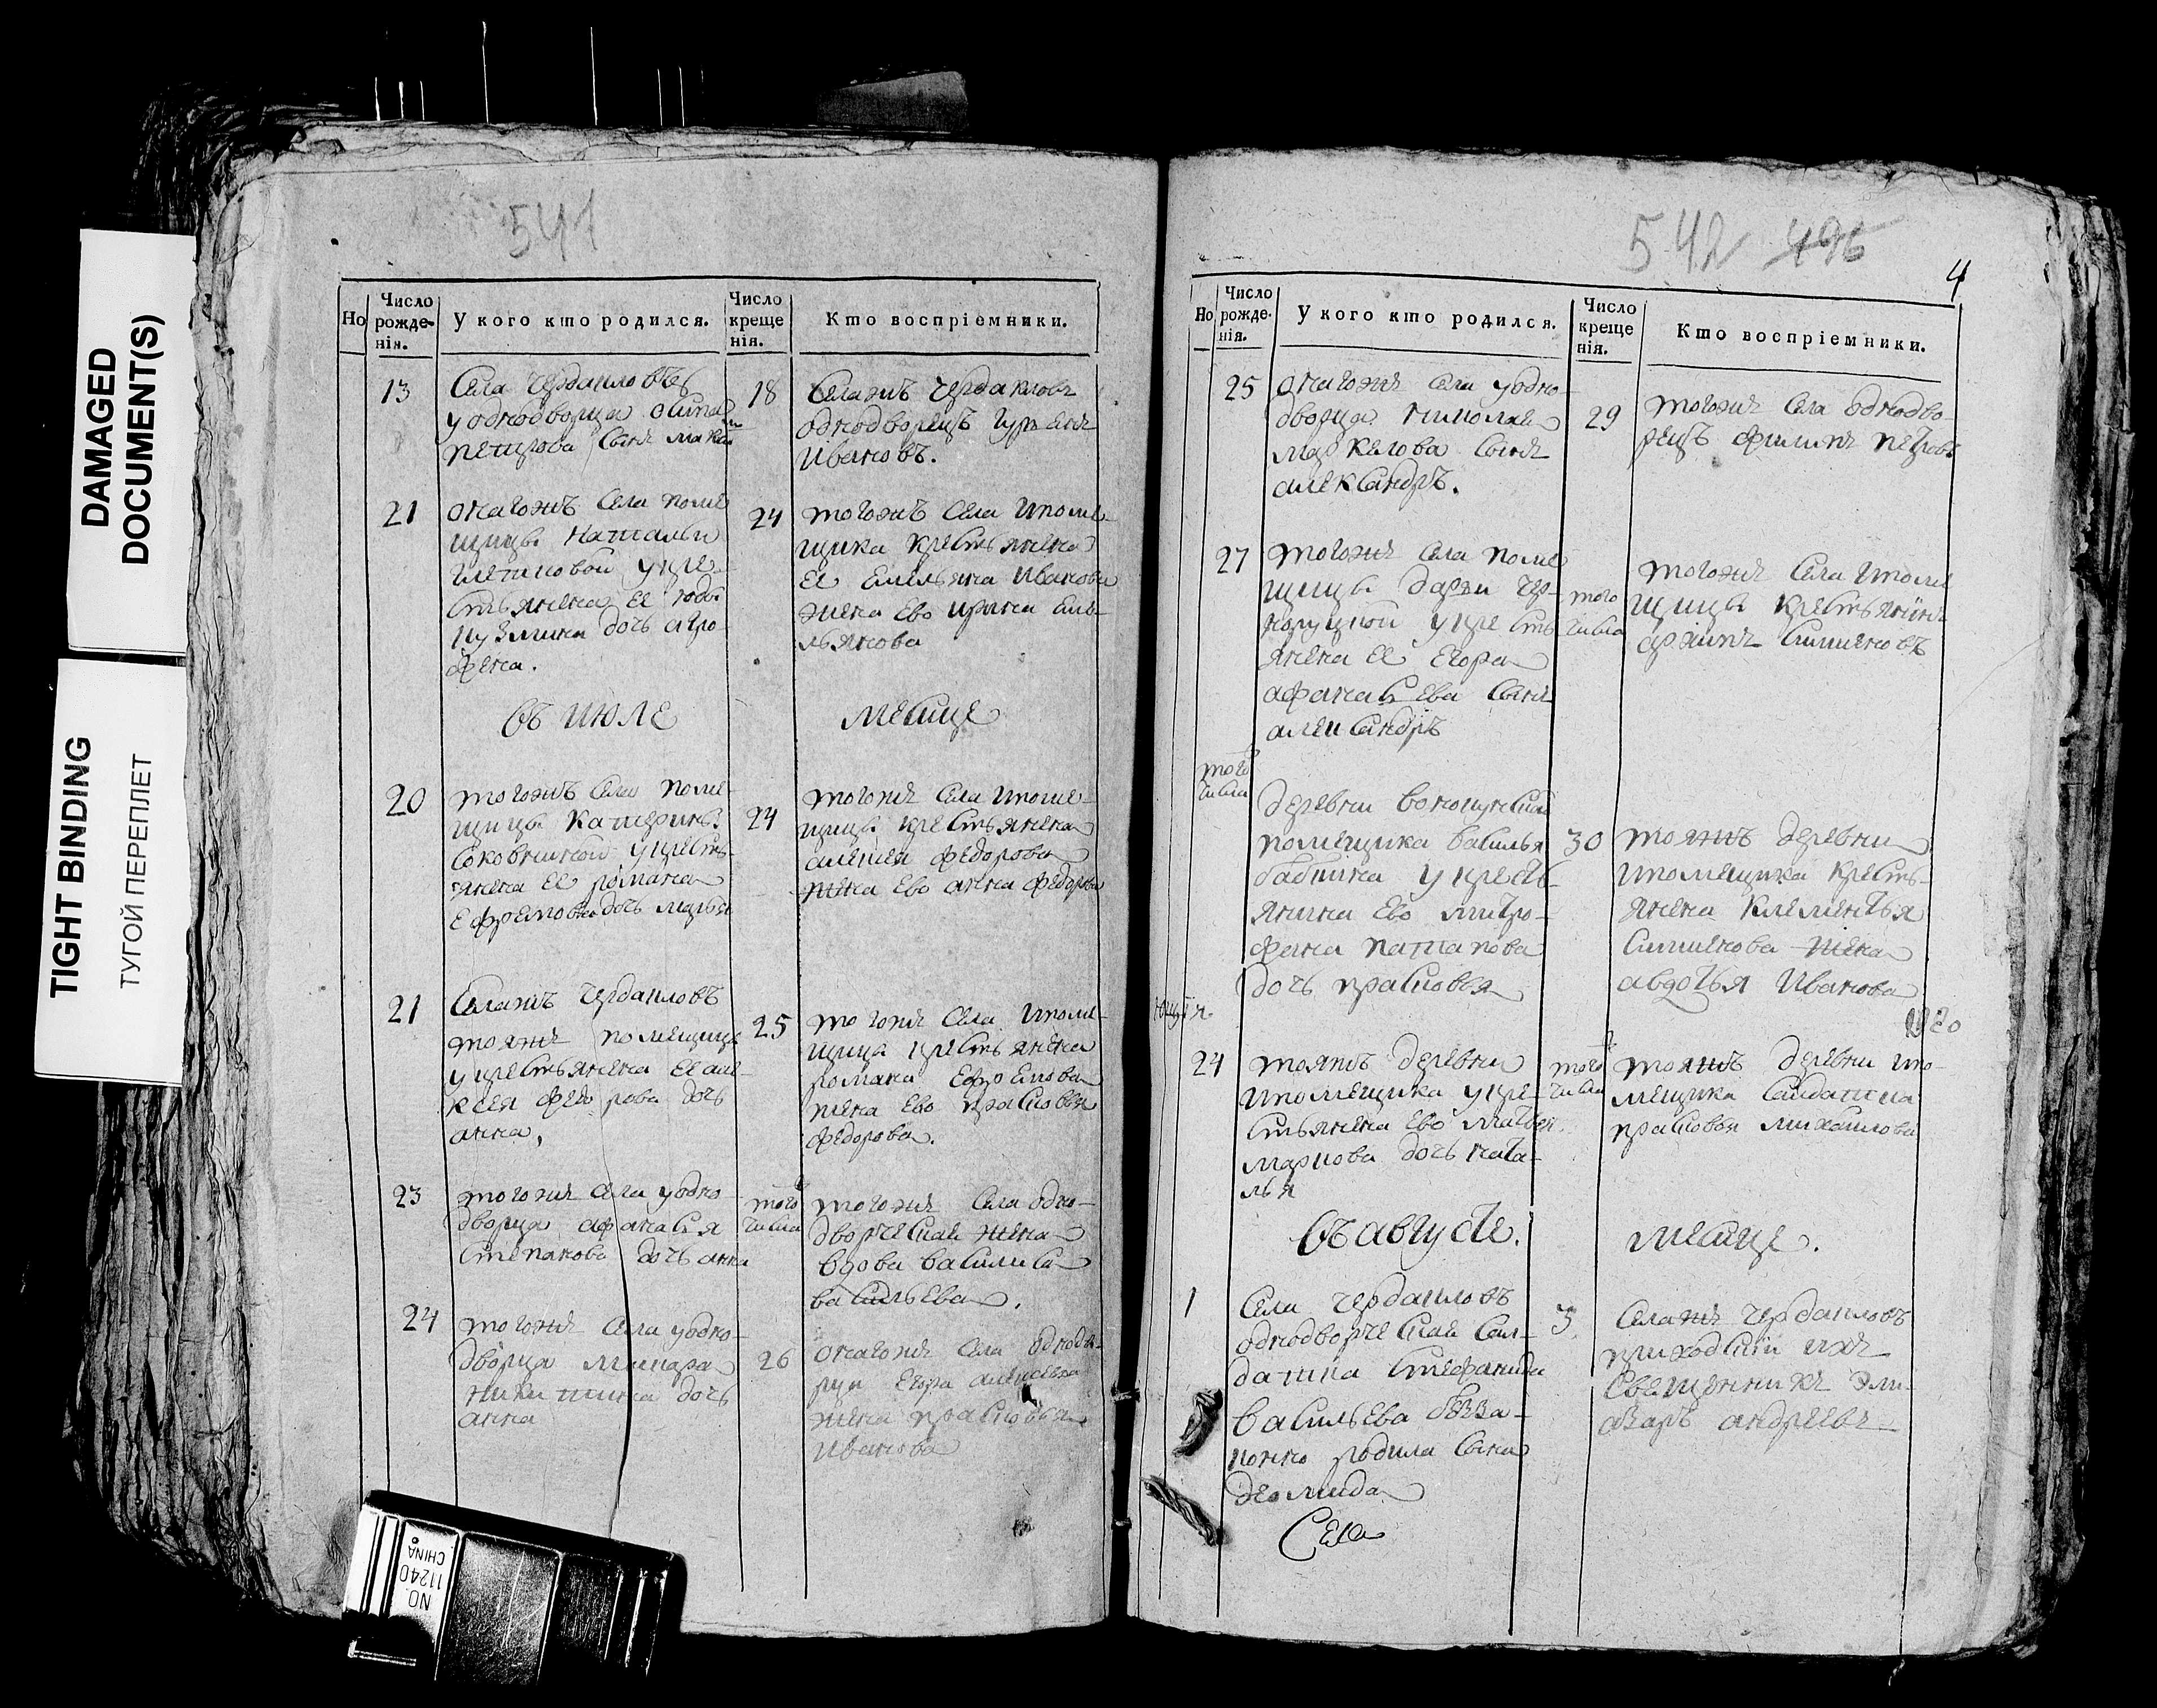 DAMAGED
DOCUMENT(S)
TIGHT BINDING
ТУГОЙ ПЕРЕПЛЕТ
541
Но
Число рожденія.
У кого кто родился.
Число крещенія.
Кто воспріемники.
13
Села Чердакловъ
у однодворца осипа
петрова Сынъ
18
Селажъ Чердакловъ
однодворецъ Гурьянъ
Ивановъ.
21
онагожъ Села поме
щицы Натальи
у кре
стьянина ее
кузмина дочь агро
фена.
24
тогожъ Села Ипоме-
щика крестьянина
ее Емельяна Иванова
жена Ево ирина Еме-
льянова
въ ИЮЛЕ
месяце
20
тогожъ Села поме-
щицы Катерины
Соковниной у кресть-
янина ее романа
Ефремова дочь марья
24
тогожъ Села ипоме-
щицы крестьянина
алексея федорова
жена Ево анна федорова
21
Селажъ Чердакловъ
тояжъ помещицы
у крестьянина ее але
ксея федорова дочь
анна,
25
тогожъ Села Ипоме-
щица крестьянина
романа Ефремова
жена Ево прасковья
федорова.
23
тогожъ Села у одно-
дворца афанасья
степанова дочь анна
того числа
тогожъ Села одно-
дворческая жена
вдова василиса
васильева.
24
тогожъ Села у одно-
дворца макара
никитина дочь
анна
26
онагожъ Села однодво-
рца Егора алексеева
жена прасковья
Иванова
542 496
4
Но
Число рожденія.
У кого кто родился.
Число крещенія.
Кто воспріемники.
25
онагожъ Села у одно-
дворца николая
маркелова Сынъ
александръ.
29
тогожъ Села однодво-
рецъ филипъ петровъ
27
тогожъ Села поме
щицы дарьи Чер-
у кресть
янина ее Егора
афанасьева Сынъ
александръ
того числа
тогожъ Села Ипоме
щицы крестьянинъ
архипъ Симионовъ
того числа
деревни
помещика василья
бабкина у кресть-
янина Ево митро-
фана патапова
дочь прасковья
30
тояжъ деревни
ипомещика кресть-
янина клементья
Симионова жена
авдотья Иванова
24
тояжъ деревни
ипомещика у кре-
стьянина Ево матвея
маркова дочь ната-
лья
того числа
тояжъ деревни ипо-
мещика Салдатка
прасковья михайлова
въ августе.
месяце.
1
Села Чердакловъ
однодворческая Сал-
датка Стефанида
васильева беззa-
конно родила Сына
деомида
3
Селажъ Чердакловъ
приходскій ихъ
Священникъ Эли-
азаръ андреевъ
Села
NO.
11240
CHINA